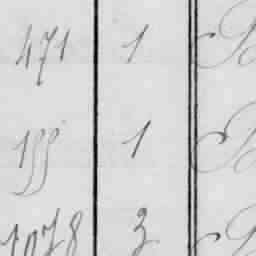 471 1
155 1
1078 3